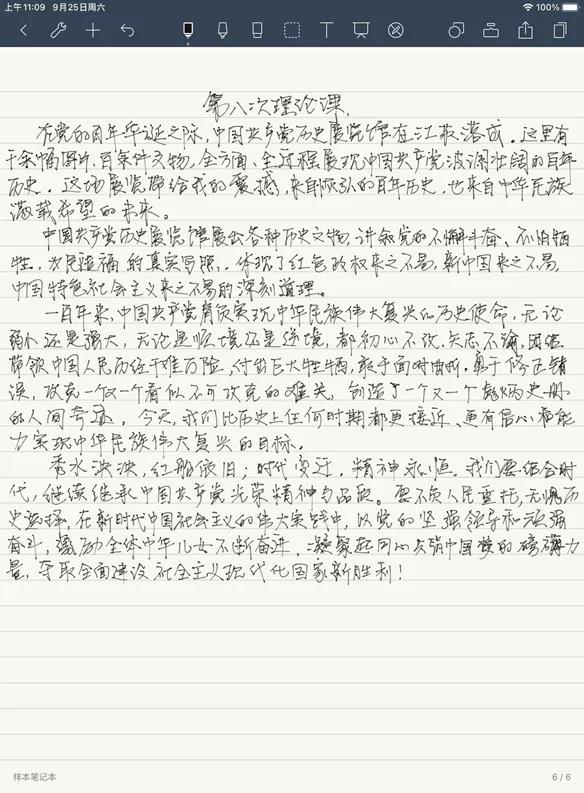 上午11:09 9月25日周六 100%
第八次理论课
在党的百年华诞之际,中国共产党历史展览馆在江苏落成。这里有
千余幅图片、百余件文物,全方面、全过程展现中国共产党波澜壮阔的百年
历史。这场展览带给我的震撼,来自恢弘的百年历史,也来自中华民族
满载希望的未来。
中国共产党历史展览馆展出各种历史文物,讲叙党的不懈斗奋、不怕牺
牲,为民造福的真实写照。体现了红色政权来之不易,新中国来之不易,
中国特色社会主义来之不易的深刻道理。
一百年来,中国共产党肩负实现中华民族伟大复兴的历史使命,无论
弱小还是强大,无论是顺境还是逆境,都初心不改,矢志不渝,团结
带领中国人民历经千难万险,付出巨大牺牲,敢于面对曲折,勇于修正错
误,攻克一个又一个看似不可攻克的难关,创造了一个又一个彪炳史册
的人间奇迹。今天,我们比历史上任何时期都更接近、更有信心和能
力实现中华民族伟大复兴的目标。
秀水泱泱,红船依旧;时代变迁,精神永恒。我们要结合时
代,继续继承中国共产党光荣精神与品质。要不负人民重托,无愧历
史选择,在新时代中国社会主义的伟大实践中,以党的坚强领导和顽强
奋斗,激励全体中华儿女不断奋进,凝聚起同心共筑中国梦的磅礴力
量,夺取全面建设社会主义现代化国家新胜利!
样本笔记本 6 / 6